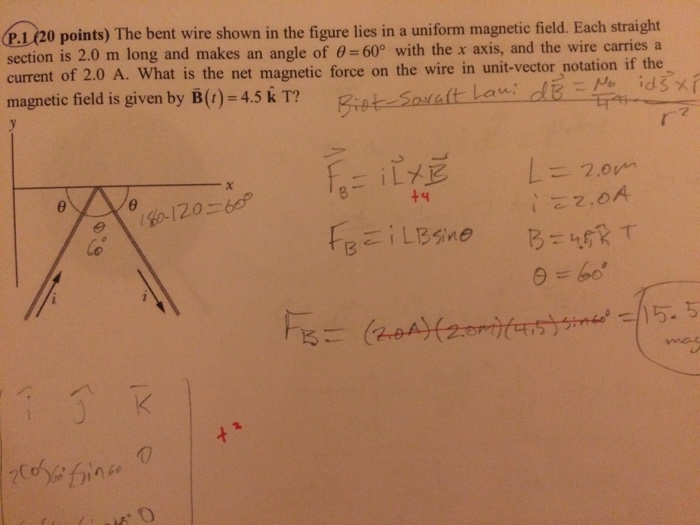 P.1 (20 points) The bent wire shown in the figure lies in a uniform magnetic field. Each straight
section is 2.0 m long and makes an angle of θ = 60° with the x axis, and the wire carries a
current of 2.0 A. What is the net magnetic force on the wire in unit-vector notation if the
magnetic field is given by B⃗(t) = 4.5 k̂ T?
Biot-Savart Law: dB⃗ = μ₀/4π ids⃗ x r
r²
y
x
θ
θ
180-120=60°
θ
60°
i
i
F⃗_B = iL⃗ x B⃗
+4
F_B = iLBsinθ
L = 2.0m
i = 2.0A
B = 4.5k̂ T
θ = 60°
F_B = (2.0A)(2.0m)(4.5)sin60° = 15.5
mag
î ĵ k̂
2cos60° sin60 0
+2
0